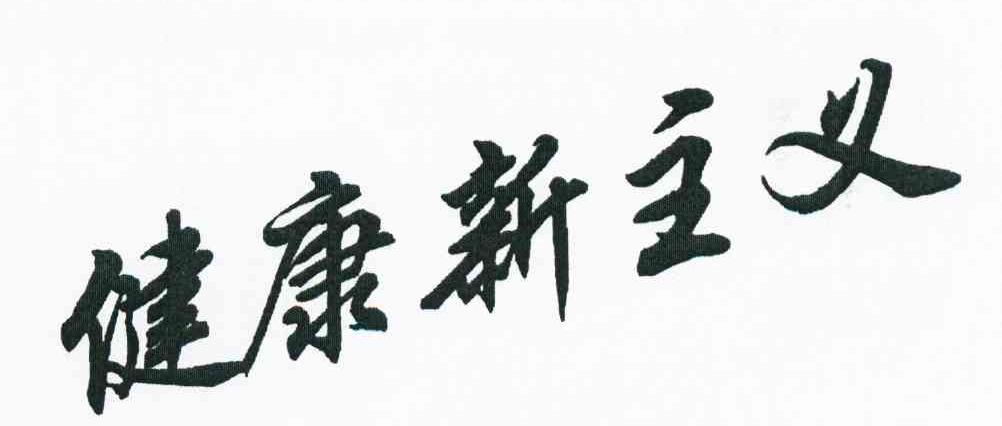 健康新主义